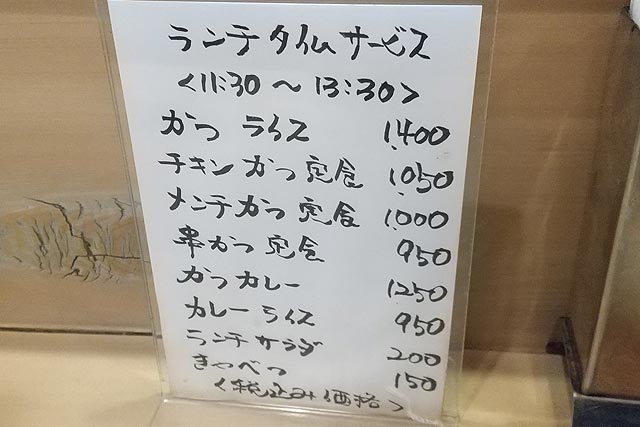 ランチタイムサービス
<11:30～13:30>
かつライス 1,400
チキンかつ定食 1,050
メンチかつ定食 1,000
串かつ定食 950
かつカレー 1250
カレーライス 950
ランチサラダ 200
きゃべつ 150
<税込み価格>